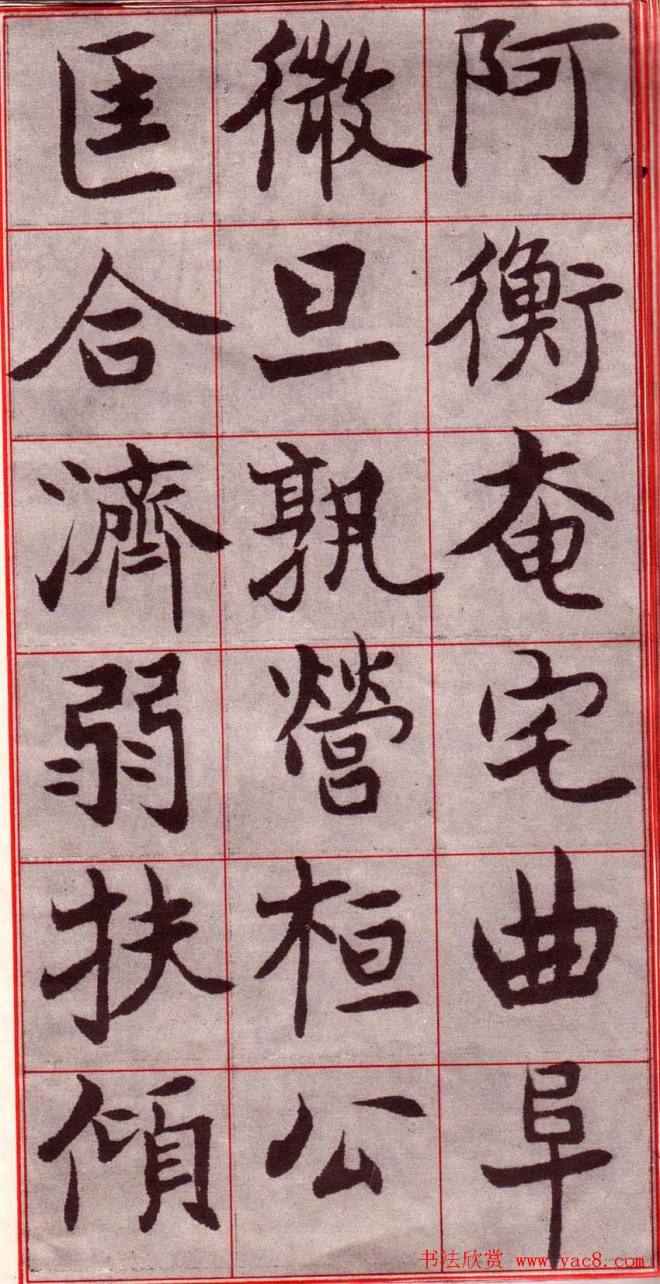 阿衡奄宅曲阜
微旦孰營桓公
匡合濟弱扶傾
书法欣赏 www.yac8.com